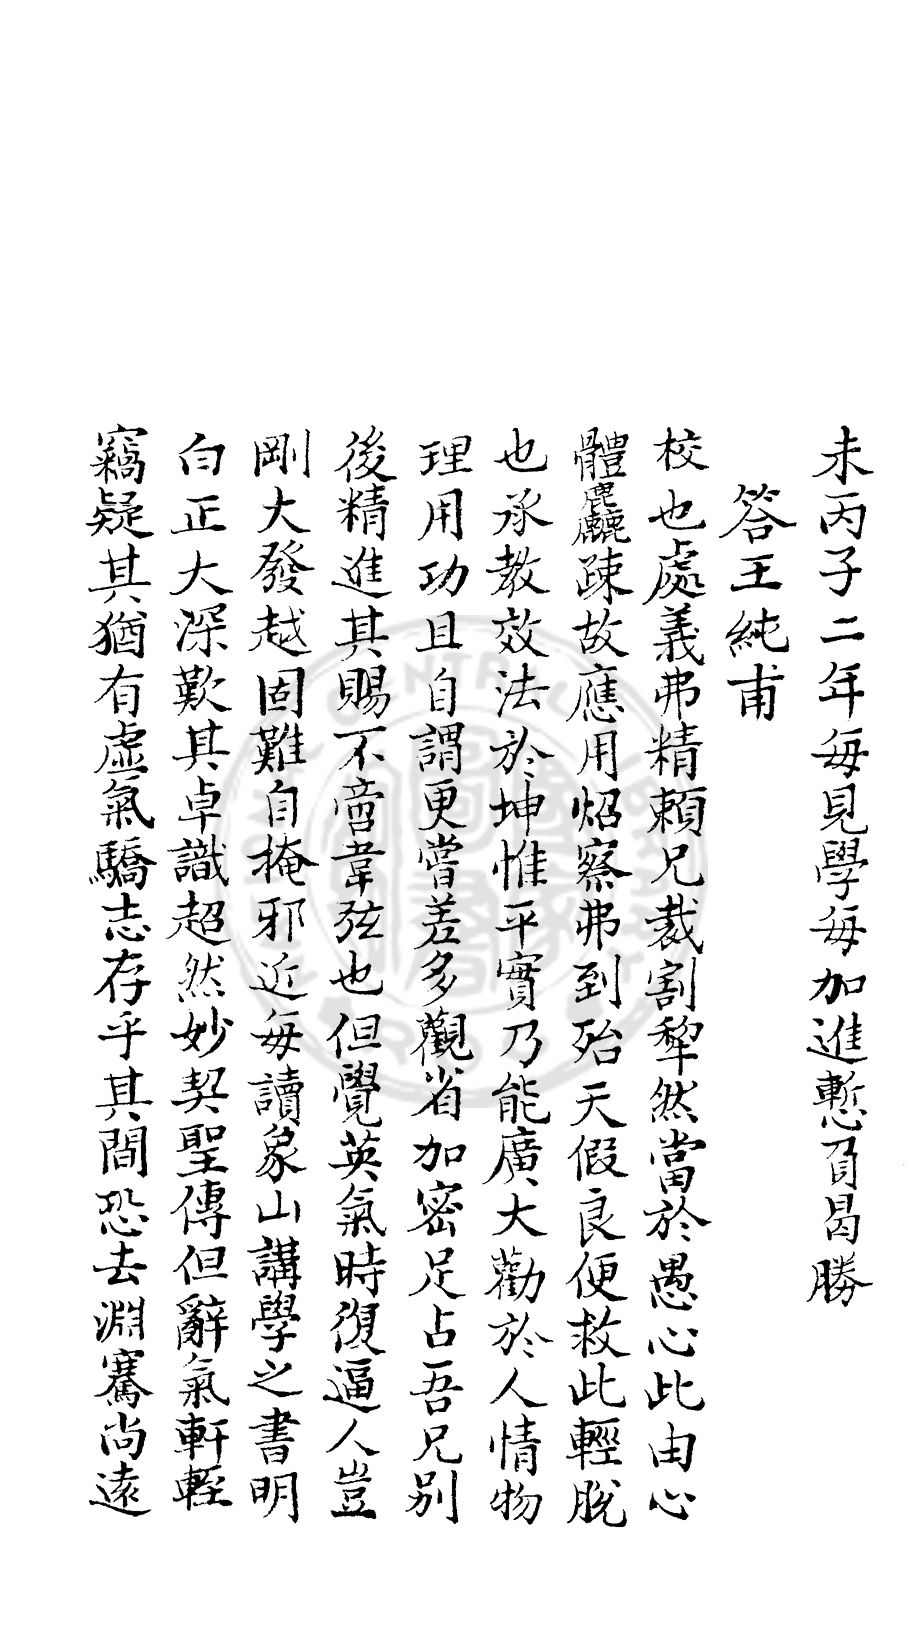 未丙子二年每見學每加進慙負曷勝
答王純甫
校也處義弗精賴兄裁割犂然當於愚心此由心
體麤疎故應用炤察弗到殆天假良便救此輕脫
也承教效法於坤惟平實乃能廣大勸於人情物
理用功且自謂更嘗差多觀省加密足占吾兄别
後精進其賜不啻韋弦也但覺英氣時復逼人豈
剛大發越固難自掩邪近每讀象山講學之書明
白正大深歎其卓識超然妙契聖傳但辭氣軒輊
竊疑其猶有虛氣驕志存乎其間恐去淵騫尚遠